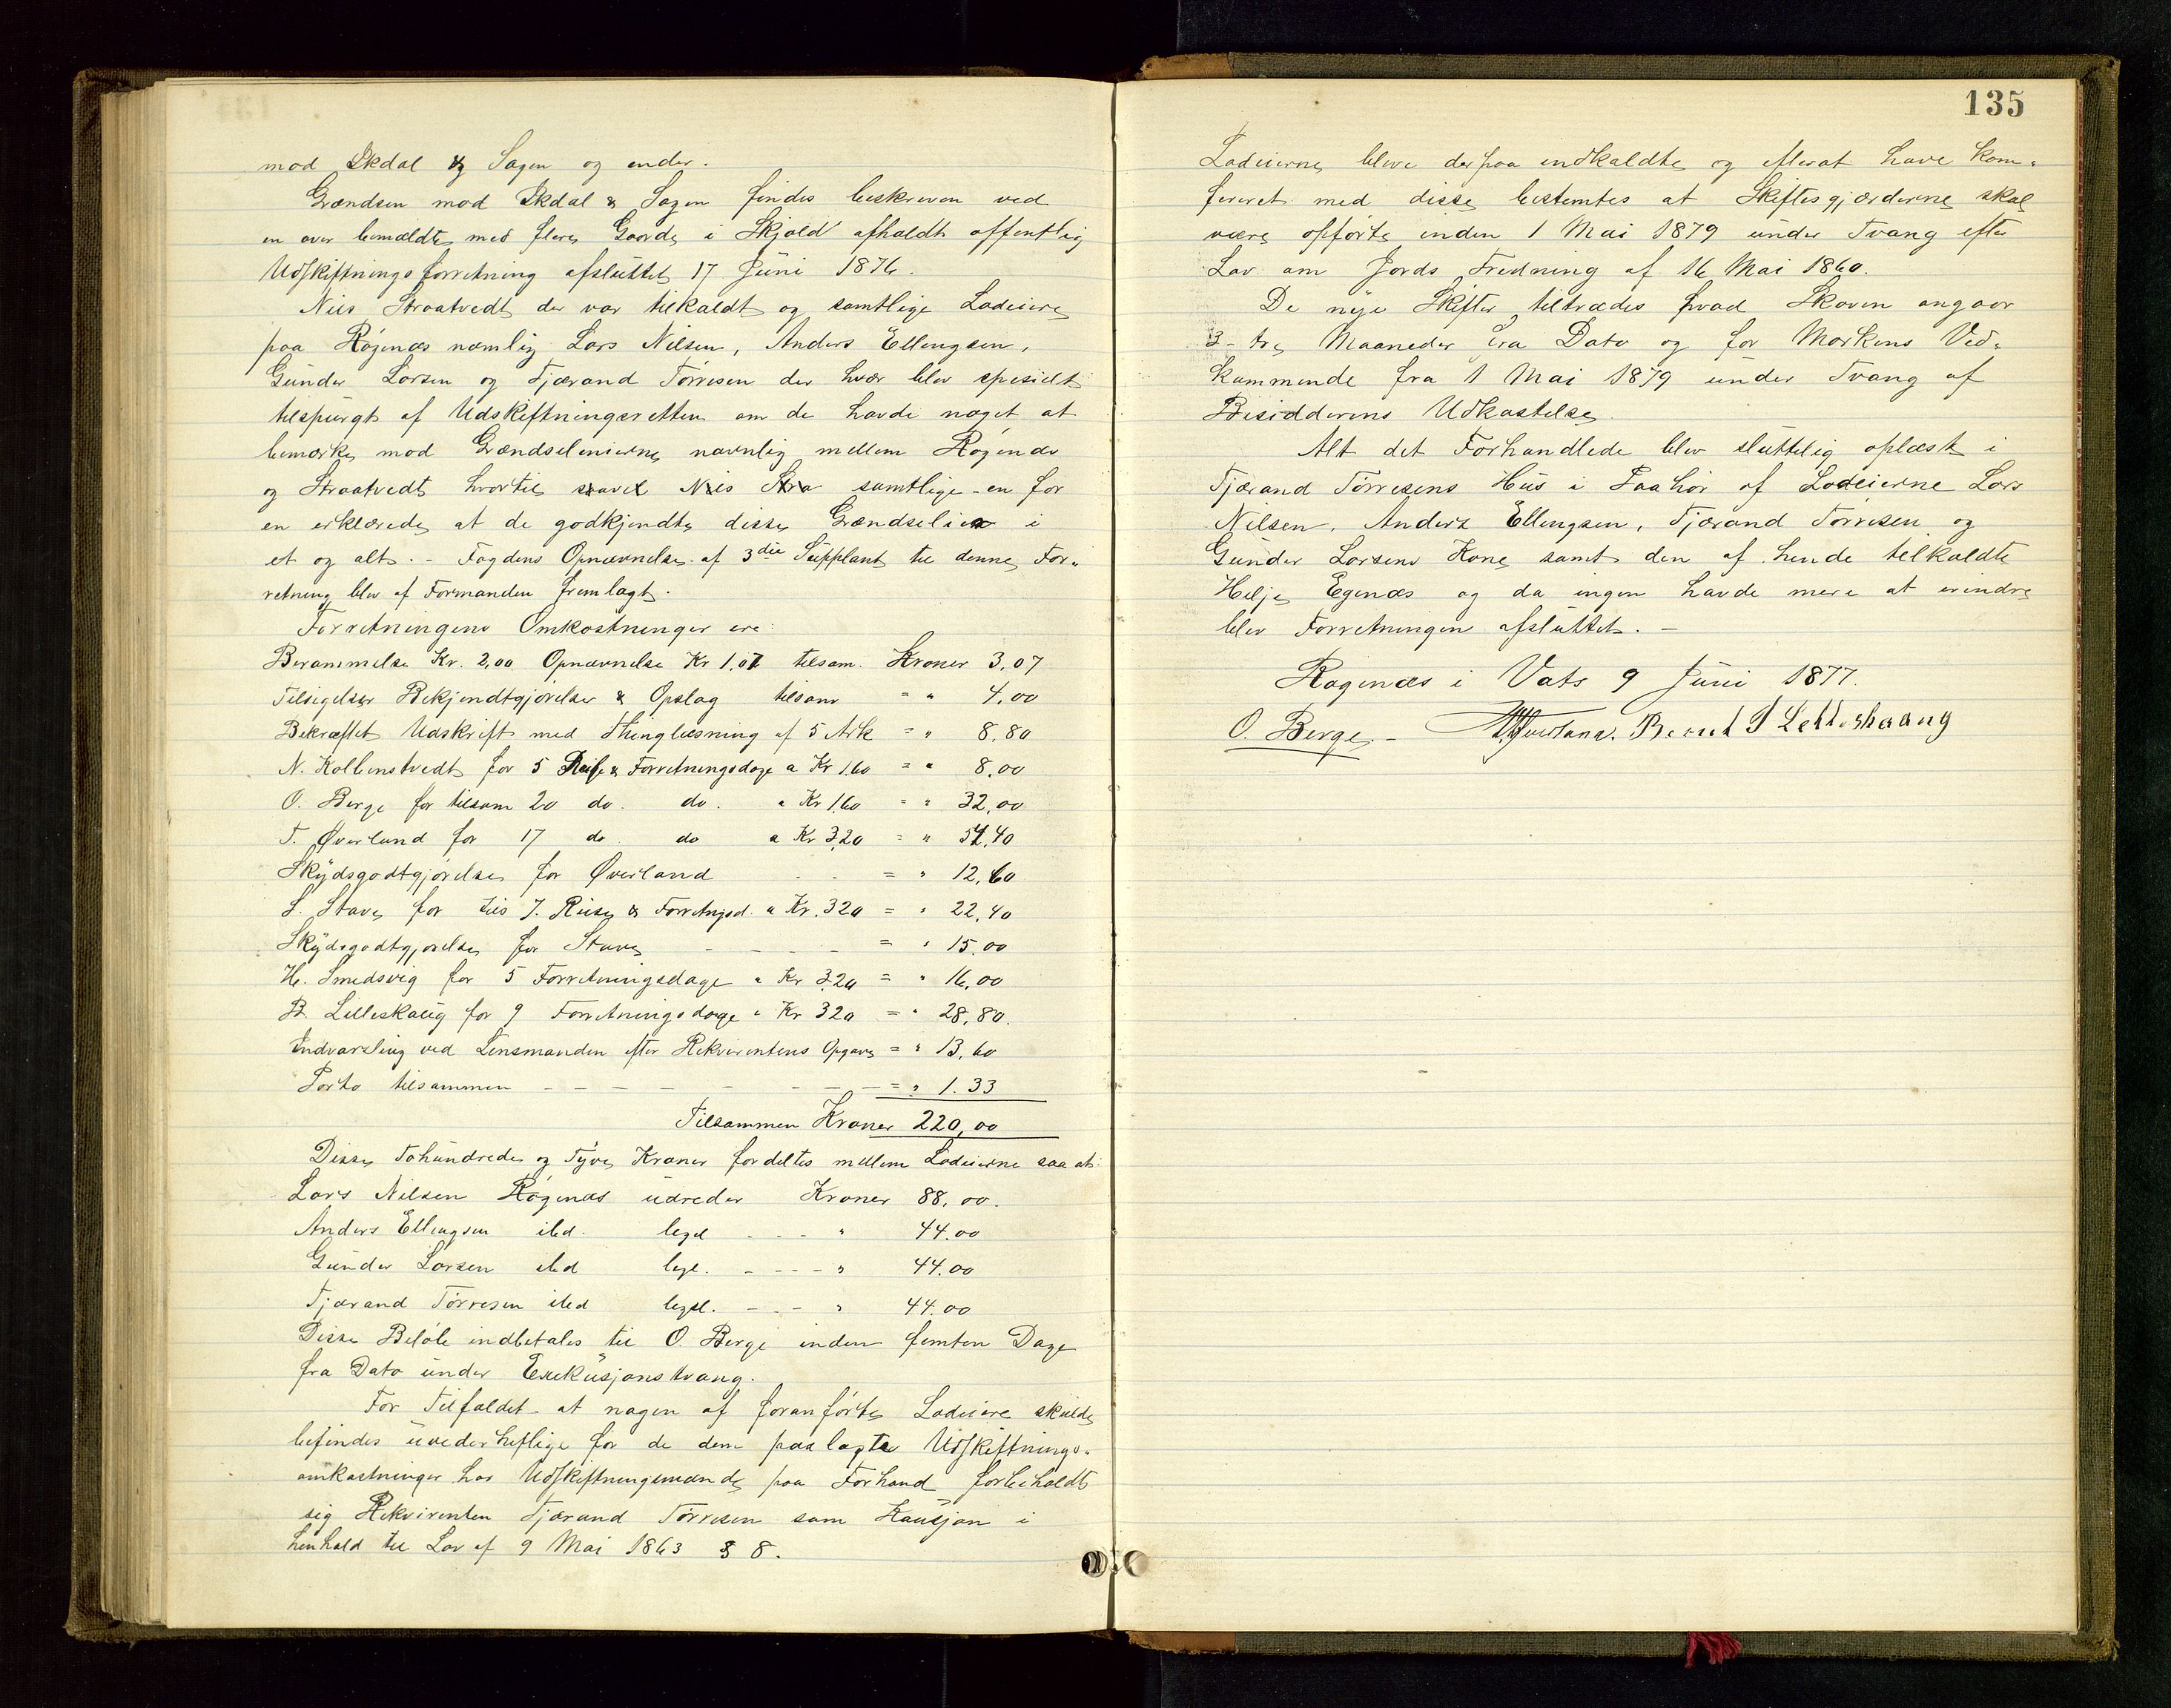 mod Økdal & Sagen og ender.
Grændsen mod Økdal & Sagen findes beskreven ved
en over bemældte med flere Gaarde i Skjold afholdt offentlig
Udskiftningsforretning afsluttet 17 Juni 1876.
Niis Straatvedt der var tilkaldt og samtlige Lodeiere
paa Røgenæs nemlig Lars Nilsen, Anders Ellengsen,
Gunder Larsen og Tjærand Tørresen der hvær blev spesielt
tilspurgt af Udskiftningsretten om de havde noget at
bemærke mod Grændselinierne navnlig mellem Røgenæs
og Straatvedt hvortil samtlige en for
en erklærede at de godkjendte disse Grændselier i
et og alt. - Fogdens Opnævnelse af 3die Supplant til denne For-
retning blev af Formanden fremlagt.
Forretningens Omkostninger ere:
Berammelse Kr. 2,00 Opnævnelse Kr 1.07 tilsam. Kroner 3,07
Tilsigelser Bekjendtgjørelser & Opslag tilsam = " 4,00
Bekræftet Udskrift med Thinglæsning af 5 Ark = " 8,80
N. Kolbenstvedt for 5 Reise & Forretningsdage a Kr 1.60 = " 8,00
O. Berge for tilsam 20 do. do. a Kr 1.60 = " 32,00
T. Øverland for 17 do do a Kr 3.20 = " 54,40
Skydsgodtgjørelse for Øverland = " 12,60
S. Stave for tils 7. Reise & Forretngsd. a Kr. 320 = " 22,40
Skydsgodtgjørelse for Stave - - - - = " 15,00
H. Smedsvig for 5 Forretningsdage a Kr 3.20 = " 16,00
B. Lilleskaug for 9 Forretningsdage a Kr 320 = " 28,80.
Indvarsling ved Lensmanden efter Rekvirentens Opgave = " 13,60
Porto tilsammen - - - - - - - = " 1.33
Tilsammen Kroner 220,00
Disse Tohundrede og Tyve Kroner fordeltes mellem Lodeierne saa at:
Lars Nilsen Røgenæs udreder Kroner 88.00.
Anders Ellengsen ibd. legel - - - " 44.00
Gunder Larsen ibd legl. - - - - " 44.00
Tjærand Tørresen ibed legel. - - - " 44.00
Disse Beløb indbetales til O. Berge inden femten Dage
fra Dato under Exekusjonstvang.
For Tilfældet at nogen af foranførte Lodeiere skulde
befindes uvederheftige for de dem paalagte Udskiftnings-
omkostninger har Udskiftningsmænde paa Forhand forbeholdt
sig Rekvirenten Tjærand Tørresen som Kausjon i
henhold til Lov af 9 Mai 1863 § 8.
135
Lodeierne bleve derpaa indkaldte og efterat have kon-
fereret med disse bestemtes at Skiftesgjærderne skal
være opførte inden 1 Mai 1879 under Tvang efter
Lov om Jords Fredning af 16 Mai 1860.
De nye Skifter tiltrædes hvad Skoven angaar
3- tre Maaneder fra Dato og for Markens Ved-
kommende fra 1 Mai 1879 under Tvang af
Besidderens Udkastelse.
Alt det Forhandlede blev sluttelig oplæst i
Tjærand Tørresens Hus i Paahør af Lodeierne Lars
Nilsen. Anders Ellengsen, Tjærand Tørresen og
Gunder Larsens Kone samt den af hende tilkaldte
Helje Egenæs og da ingen havde mere at erindre
blev Forretningen afsluttet. -
Røgenæs i Vats 9 Juni 1877.
O. Berge. - Øverland. Berent S Lelleskaaug